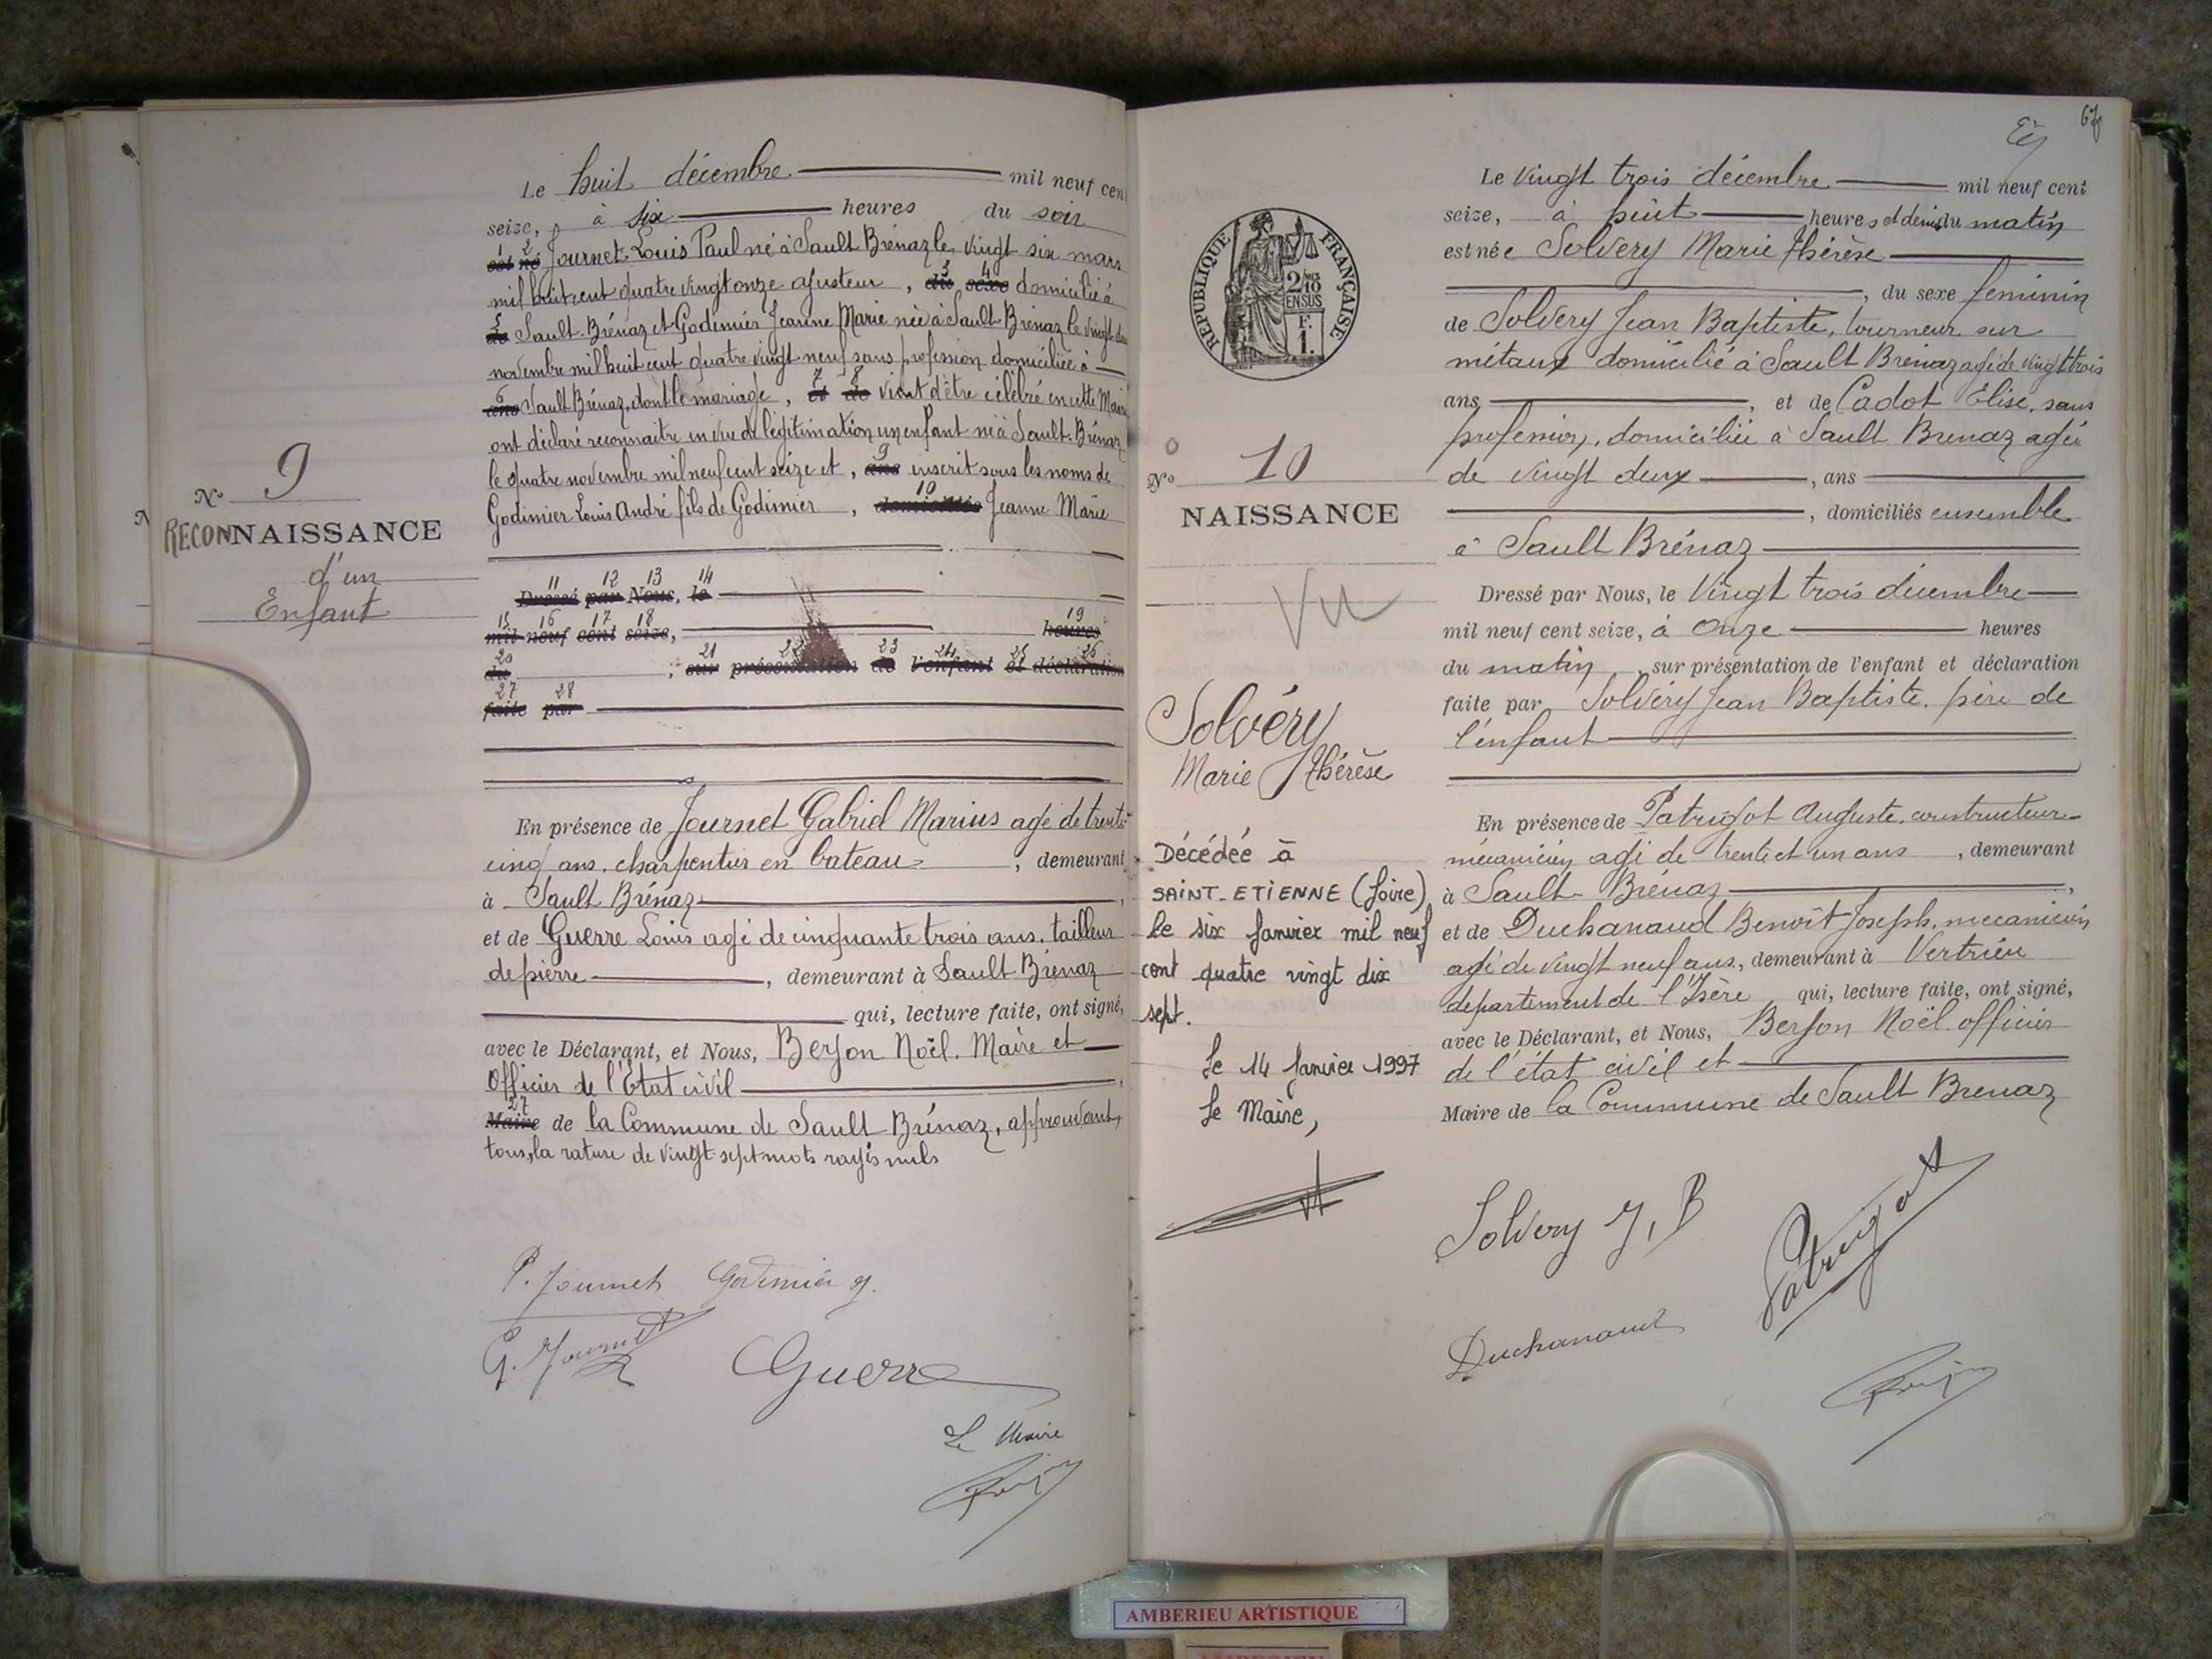 Le huit décembre mil neuf cent
seize, à six heures du soir
1 2
est né Journet Louis Paul né à Sault Brénaz le vingt six mars
mil huit cent quatre vingt onze ajusteur, du sexe domicilié à
3 4
de Sault-Brénaz et Godimier Jeanne Marie née à Sault Brénaz le vingt
5
novembre mil huit cent quatre vingt neuf sans profession domiciliée à
ans Sault Brénaz, dont le mariage, et de vient d'être célébré en cette Mairie
6 7 8
ont déclaré reconnaitre en vue de légitimation un enfant né à Sault-Brénaz
le quatre novembre mil neuf cent seize et, ans inscrit sous les noms de
9
Godimier Louis André fils de Godimier, domiciliés Jeanne Marie
10
N° 9
RECONNAISSANCE
d'un
Enfant
11 12 13 14
Dressé par Nous, le
15 16 17 18 19
mil neuf cent seize, heures
20 21 22 23 24 25 26
du ; sur présentation de l'enfant et déclaration
27 28
faite par
En présence de Journet Gabriel Marius agé de trente
cinq ans, charpentier en bateau, demeurant
à Sault Brénaz,
et de Guerre Louis agé de cinquante trois ans, tailleur
de pierre, demeurant à Sault Brénaz
qui, lecture faite, ont signé,
avec le Déclarant, et Nous, Berjon Noël, Maire et
Officier de l'État civil
27
Maire de la Commune de Sault Brénaz, approuvant,
tous, la rature de vingt-sept mots rayés nuls
P. Journet Godimier J.
G. Journet
Guerre
Le Maire
67
Le vingt trois décembre mil neuf cent
seize, à huit heures et demie du matin
est née Solvery Marie Thérèse
, du sexe féminin
de Solvery Jean Baptiste, tourneur sur
métaux domicilié à Sault Brénaz agé de vingt trois
ans, et de Cadot Elise, sans
profession, domiciliée à Sault Brenaz agée
de vingt deux, ans
, domiciliés ensemble
à Sault Brénaz
REPUBLIQUE FRANÇAISE
2/10
EN SUS
F.
1.
N° 10
NAISSANCE
Vu
Solvéry
Marie Thérèse
Décédée à
SAINT-ETIENNE (Loire)
le six Janvier mil neuf
cent quatre vingt dix
sept.
Le 14 Janvier 1997
Le Maire,
Dressé par Nous, le vingt trois décembre
mil neuf cent seize, à onze heures
du matin, sur présentation de l'enfant et déclaration
faite par Solvéry Jean Baptiste, père de
l'enfant
En présence de Patrigot Auguste, constructeur-
mécanicien agé de trente et un ans, demeurant
à Sault-Brénaz,
et de Duchanaud Benoît Joseph, mecanicien
agé de vingt neuf ans, demeurant à Vertrieu
departement de l'Isère qui, lecture faite, ont signé,
avec le Déclarant, et Nous, Berjon Noël officier
de l'état civil et
Maire de la Commune de Sault Brenaz
Solvery J, B
Patrigot
Duchanaud
AMBERIEU ARTISTIQUE
AMBERIEU